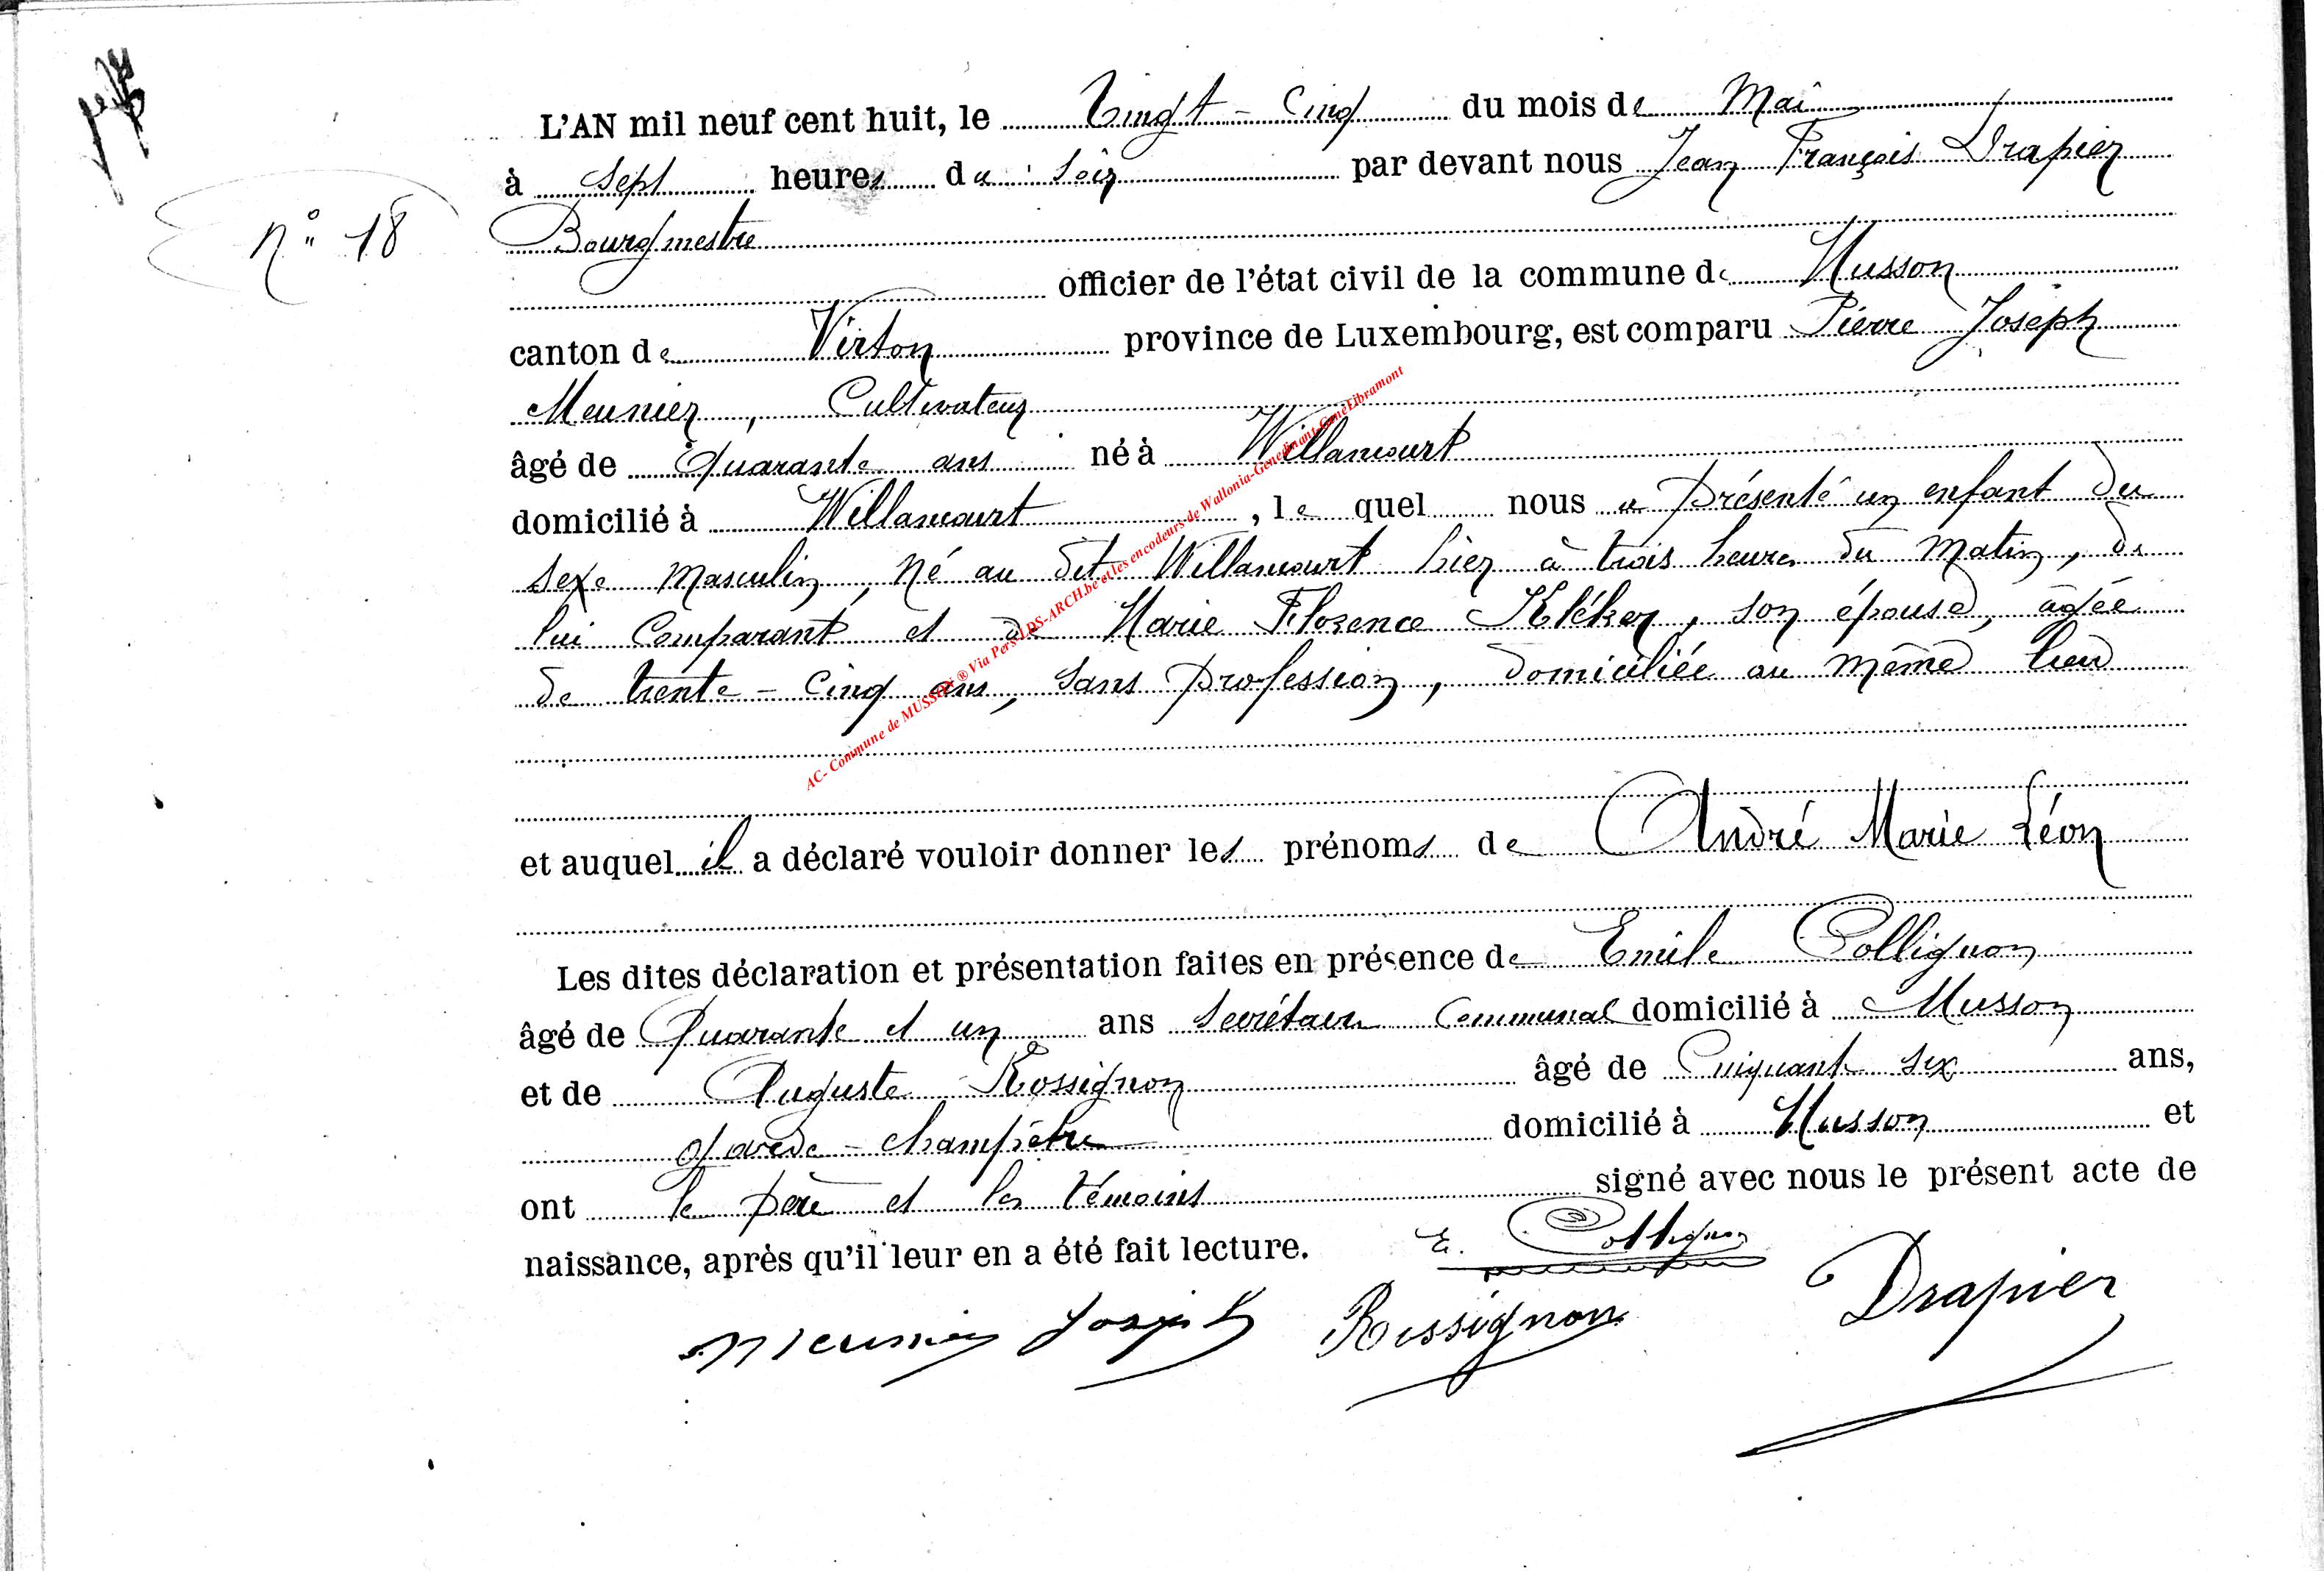 L'AN mil neuf cent huit, le Vingt-Cinq du mois de Mai
à Sept heures du Soir par devant nous Jean François Drapier
N° 18
Bourgmestre
officier de l'état civil de la commune de Musson
canton de Virton province de Luxembourg, est comparu Pierre Joseph
Meunier, Cultivateur
âgé de Quarante ans né à Willancourt
domicilié à Willancourt, le quel nous a présenté un enfant du
sexe masculin, né au dit Willancourt hier à trois heures du matin, de
lui Comparant et de Marie Florence Kléker, son épouse, âgée
de trente-cinq ans, sans profession, domiciliée au même lieu
AC- Commune de MUSSON ® Via Pers-LDS-ARCH.be et les encodeurs de Wallonia-Genedinant-GeneLibramont
et auquel il a déclaré vouloir donner les prénoms de André Marie Léon
Les dites déclaration et présentation faites en présence de Emile Collignon
âgé de Quarante et un ans Secrétaire Communal domicilié à Musson
et de Auguste Rossignon âgé de Cinquant six ans,
garde-champêtre domicilié à Musson et
ont le père et les témoins signé avec nous le présent acte de
naissance, après qu'il leur en a été fait lecture. E. Collignon
Meunier Joseph Rossignon Drapier